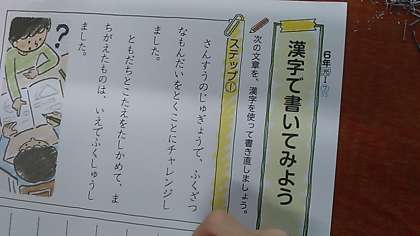 6年
漢字で書いてみよう
次の文章を、漢字を使って書き直しましょう。
ステップ①
さんすうのじゅぎょうで、ふくざつ
なもんだいをとくことにチャレンジし
ました。
ともだちとこたえをたしかめて、ま
ちがえたものは、いえでふくしゅうし
ました。
?